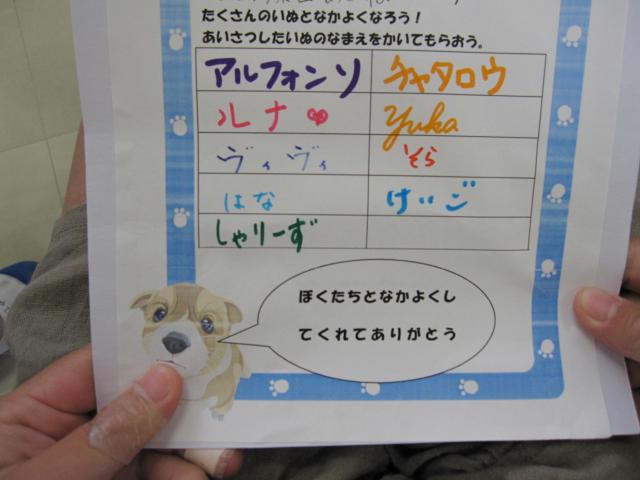 たくさんのいぬとなかよくなろう！
あいさつしたいぬのなまえをかいてもらおう。
アルフォンソ チャタロウ
ルナ♥ Yuka
ヴィヴィ そら
はな けいご
しゃりーず
ぼくたちとなかよくし
てくれてありがとう